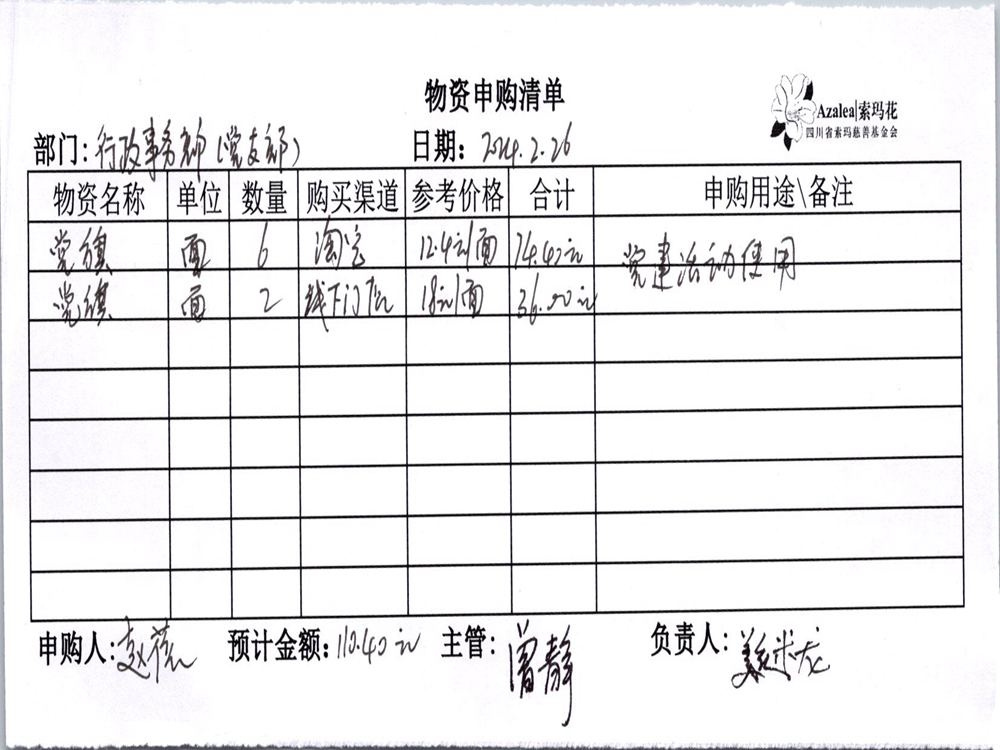 物资申购清单
Azalea|索玛花
四川省索玛慈善基金会
部门:行政事务部(党支部) 日期:2024.2.26
物资名称 单位 数量 购买渠道 参考价格 合计 申购用途\备注
党旗 面 6 淘宝 12.4元/面 74.40元 党建活动使用
党旗 面 2 线下门店 18元/面 36.00元
申购人:赵蓓 预计金额:110.40元 主管:曾静 负责人: